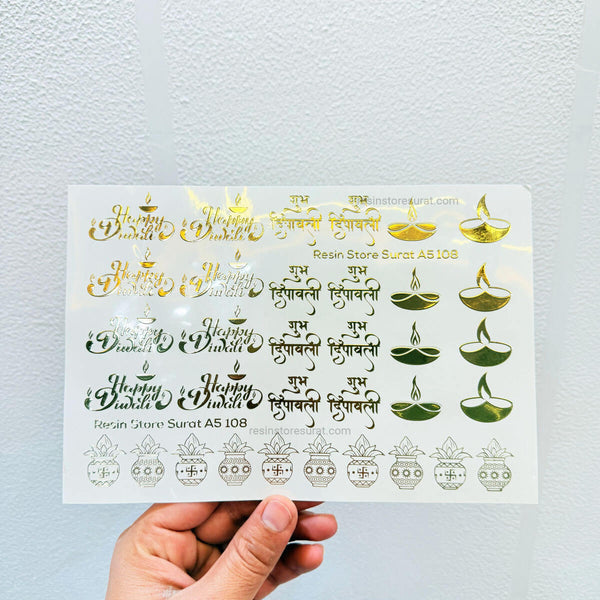 resinstoresurat.com
Happy Diwali Happy Diwali शुभ दिपावली शुभ दिपावली
Resin Store Surat A5 108
Happy Diwali Happy Diwali शुभ दिपावली शुभ दिपावली
Happy Diwali Happy Diwali शुभ दिपावली शुभ दिपावली
Happy Diwali Happy Diwali शुभ दिपावली शुभ दिपावली
Resin Store Surat A5 108
resinstoresurat.com